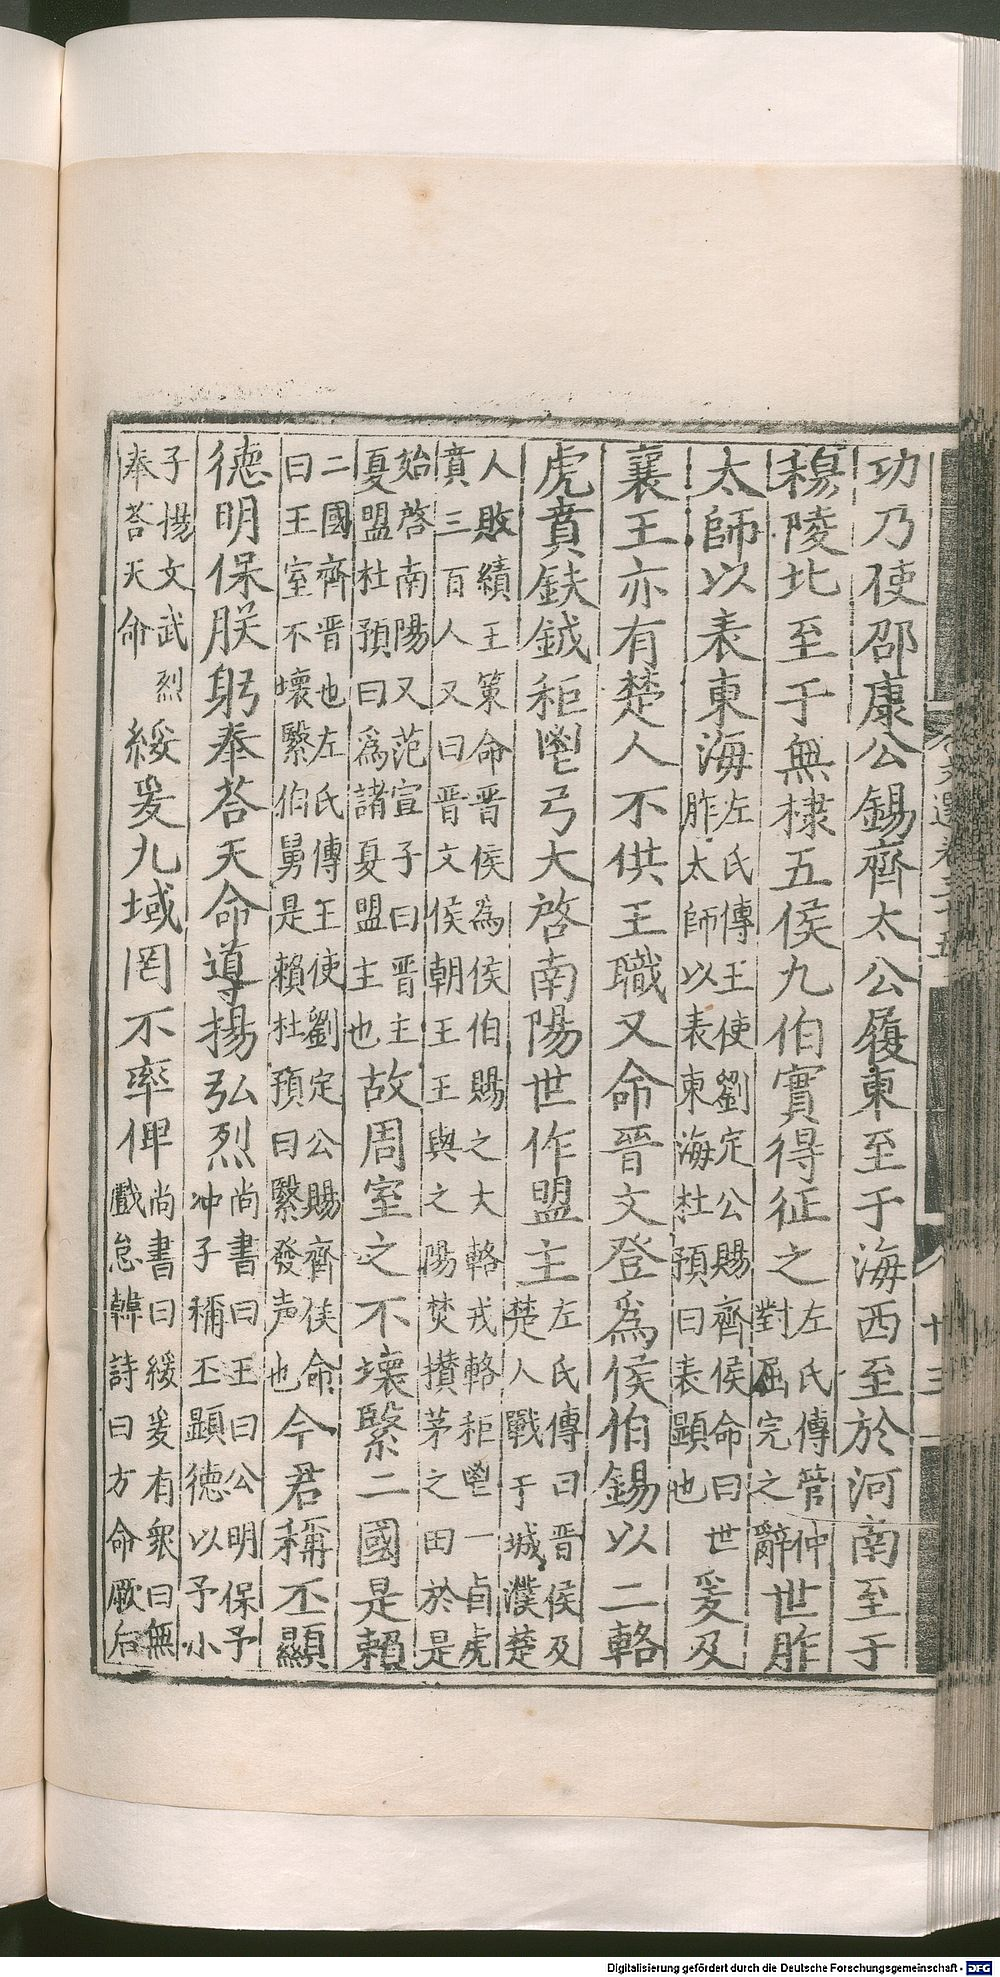 功乃使邵康公錫齊太公履東至于海西至於河南至于
穆陵北至于無棣五侯九伯實得征之左氏傳管仲對屈完之辭世胙
太師以表東海左氏傳王使劉定公賜齊侯命曰世胙太師以表東海杜預曰表顯也爰及
襄王亦有楚人不供王職又命晋文登爲侯伯錫以二輅
虎賁鈇鉞秬鬯弓大啓南陽世作盟主左氏傳曰晋侯及楚人戰于城濮楚
人敗績王策命晋侯為侯伯賜之大輅戎輅秬鬯一卣虎賁三百人又曰晋文侯朝王王與之陽焚攢茅之田於是
始啓南陽又范宣子曰晋主夏盟杜預曰爲諸夏盟主也故周室之不壞繄二國是賴
二國齊晋也左氏傳王使劉定公賜齊侯命曰王室不壞繄伯舅是賴杜預曰繄發声也今君稱丕顯
德明保朕躬奉荅天命導揚弘烈尚書曰王曰公明保予冲子稱丕顯德以予小
子揚文武烈奉荅天命綏爰九域罔不率俾尚書曰綏爰有衆曰無戲怠韓詩曰方命厥后
十三
Digitalisierung gefördert durch die Deutsche Forschungsgemeinschaft - DFG